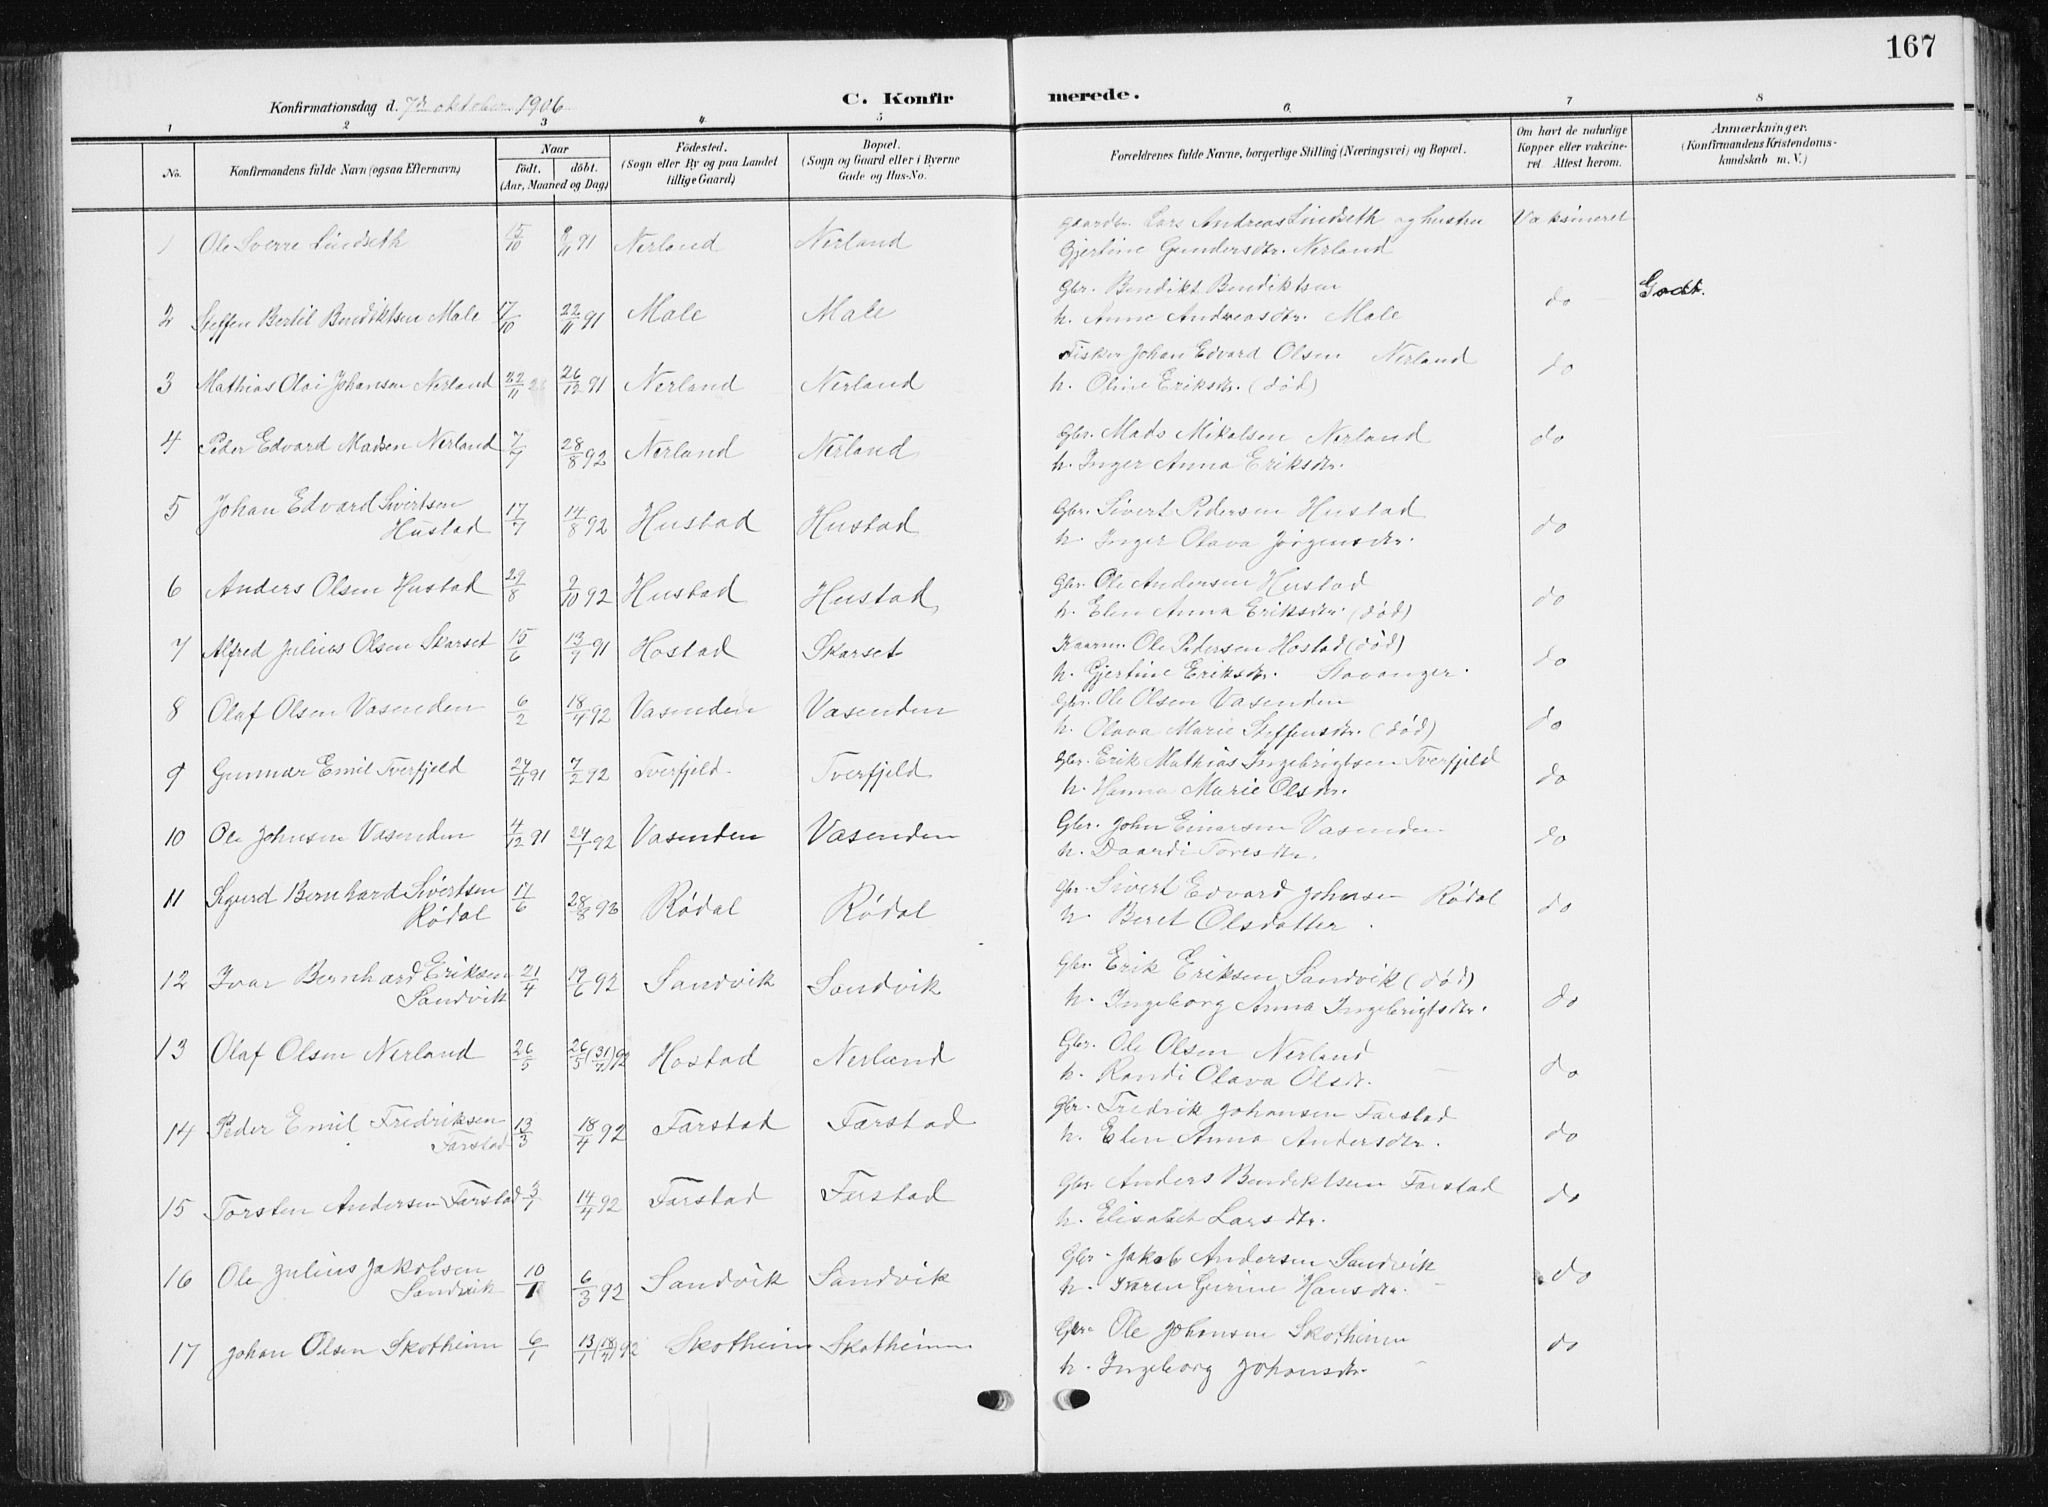 167
Konfirmationsdag d. 7de oktober 1906
C. Konfirmerede.
1 2 3 4 5 6 7 8
No.
Konfirmandens fulde Navn (ogsaa Efternavn)
Naar
födt. döbt.
(Aar, Maaned og Dag)
Födested.
(Sogn eller By og paa Landet
tillige Gaard)
Bopæl.
(Sogn og Gaard eller i Byerne
Gade og Hus-No.
Forældrenes fulde Navne, borgerlige Stilling (Næringsvei) og Bopæl.
Om havt de naturlige
Kopper eller vakcine-
ret Attest herom.
Anmærkninger.
(Konfirmandens Kristendoms-
kundskab m. V.)
1 Ole Sverre Lindseth 15/10 9/11 91 Nerland Nerland Gaardbr. Lars Andreas Lindseth og hustru Vaksineret
Gjertine Gundersdtr. Nerland
2 Steffen Bertil Bendiktsen Male 17/10 22/11 91 Male Male Gbr. Bendikt Bendiktsen do Godt.
h. Anne Andreasdtr. Male
3 Mathias Olai Johansen Nerland 22/11 26/12 91 Nerland Nerland Fisker Johan Edvard Olsen Nerland do
h. Oline Eriksdtr. (död)
4 Peder Edvard Madsen Nerland 7/7 28/8 92 Nerland Nerland Gbr. Mads Mikalsen Nerland do
h. Inger Anna Eriksdtr.
5 Johan Edvard Sivertsen
Hustad 17/7 14/8 92 Hustad Hustad Gbr. Sivert Pedersen Hustad do
h. Inger Olava Jörgensdtr.
6 Anders Olsen Hustad 29/8 2/10 92 Hustad Hustad Gbr. Ole Andersen Hustad do
h. Elen Anna Eriksdtr. (död)
7 Alfred Julius Olsen Skarset 15/6 13/9 91 Hostad Skarset Ole Pedersen Hostad (död) do
h. Gjertine Eriksdtr. Stavanger.
8 Olaf Olsen Vasenden 6/2 18/4 92 Vasenden Vasenden Gbr. Ole Olsen Vasenden do
h. Olava Marie Steffensdtr. (död)
9 Gunnar Emil Tverfjeld 24/11 91 7/2 92 Tverfjeld Tverfjeld Gbr. Erik Mathias Ingebrigtsen Tverfjeld do
h. Hanna Marie Olsdtr.
10 Ole Johnsen Vasenden 4/12 91 24/1 92 Vasenden Vasenden Gbr. John Einarsen Vasenden do
h. Daardi Toresdtr.
11 Sigurd Bernhard Sivertsen
Rödal 17/6 28/8 92 Rödal Rödal Gbr. Sivert Edvard Johnsen Rödal do
h. Beret Olsdatter.
12 Ivar Bernhard Eriksen
Sandvik 21/4 12/6 92 Sandvik Sandvik Gbr. Erik Eriksen Sandvik (död) do
h. Ingeborg Anna Ingebrigtsdtr.
13 Olaf Olsen Nerland 26/5 26/5 (31/7) 92 Hostad Nerland Gbr. Ole Olsen Nerland do
h. Randi Olava Olsdtr.
14 Peder Emil Fredriksen
Farstad 13/3 18/4 92 Farstad Farstad Gbr. Fredrik Johansen Farstad do
h. Elen Anna Andersdtr.
15 Torsten Andersen Farstad 3/1 14/4 92 Farstad Farstad Gbr. Anders Bendiktsen Farstad do
h. Elisabet Larsdtr.
16 Ole Julius Jakobsen
Sandvik 10/1 6/3 92 Sandvik Sandvik Gbr. Jakob Andersen Sandvik do
h. Karen Gurine Hansdtr.
17 Johan Olsen Skotheim 6/1 13/1 (18/4) 92 Skotheim Skotheim Gbr. Ole Johansen Skotheim do
h. Ingeborg Johansdtr.